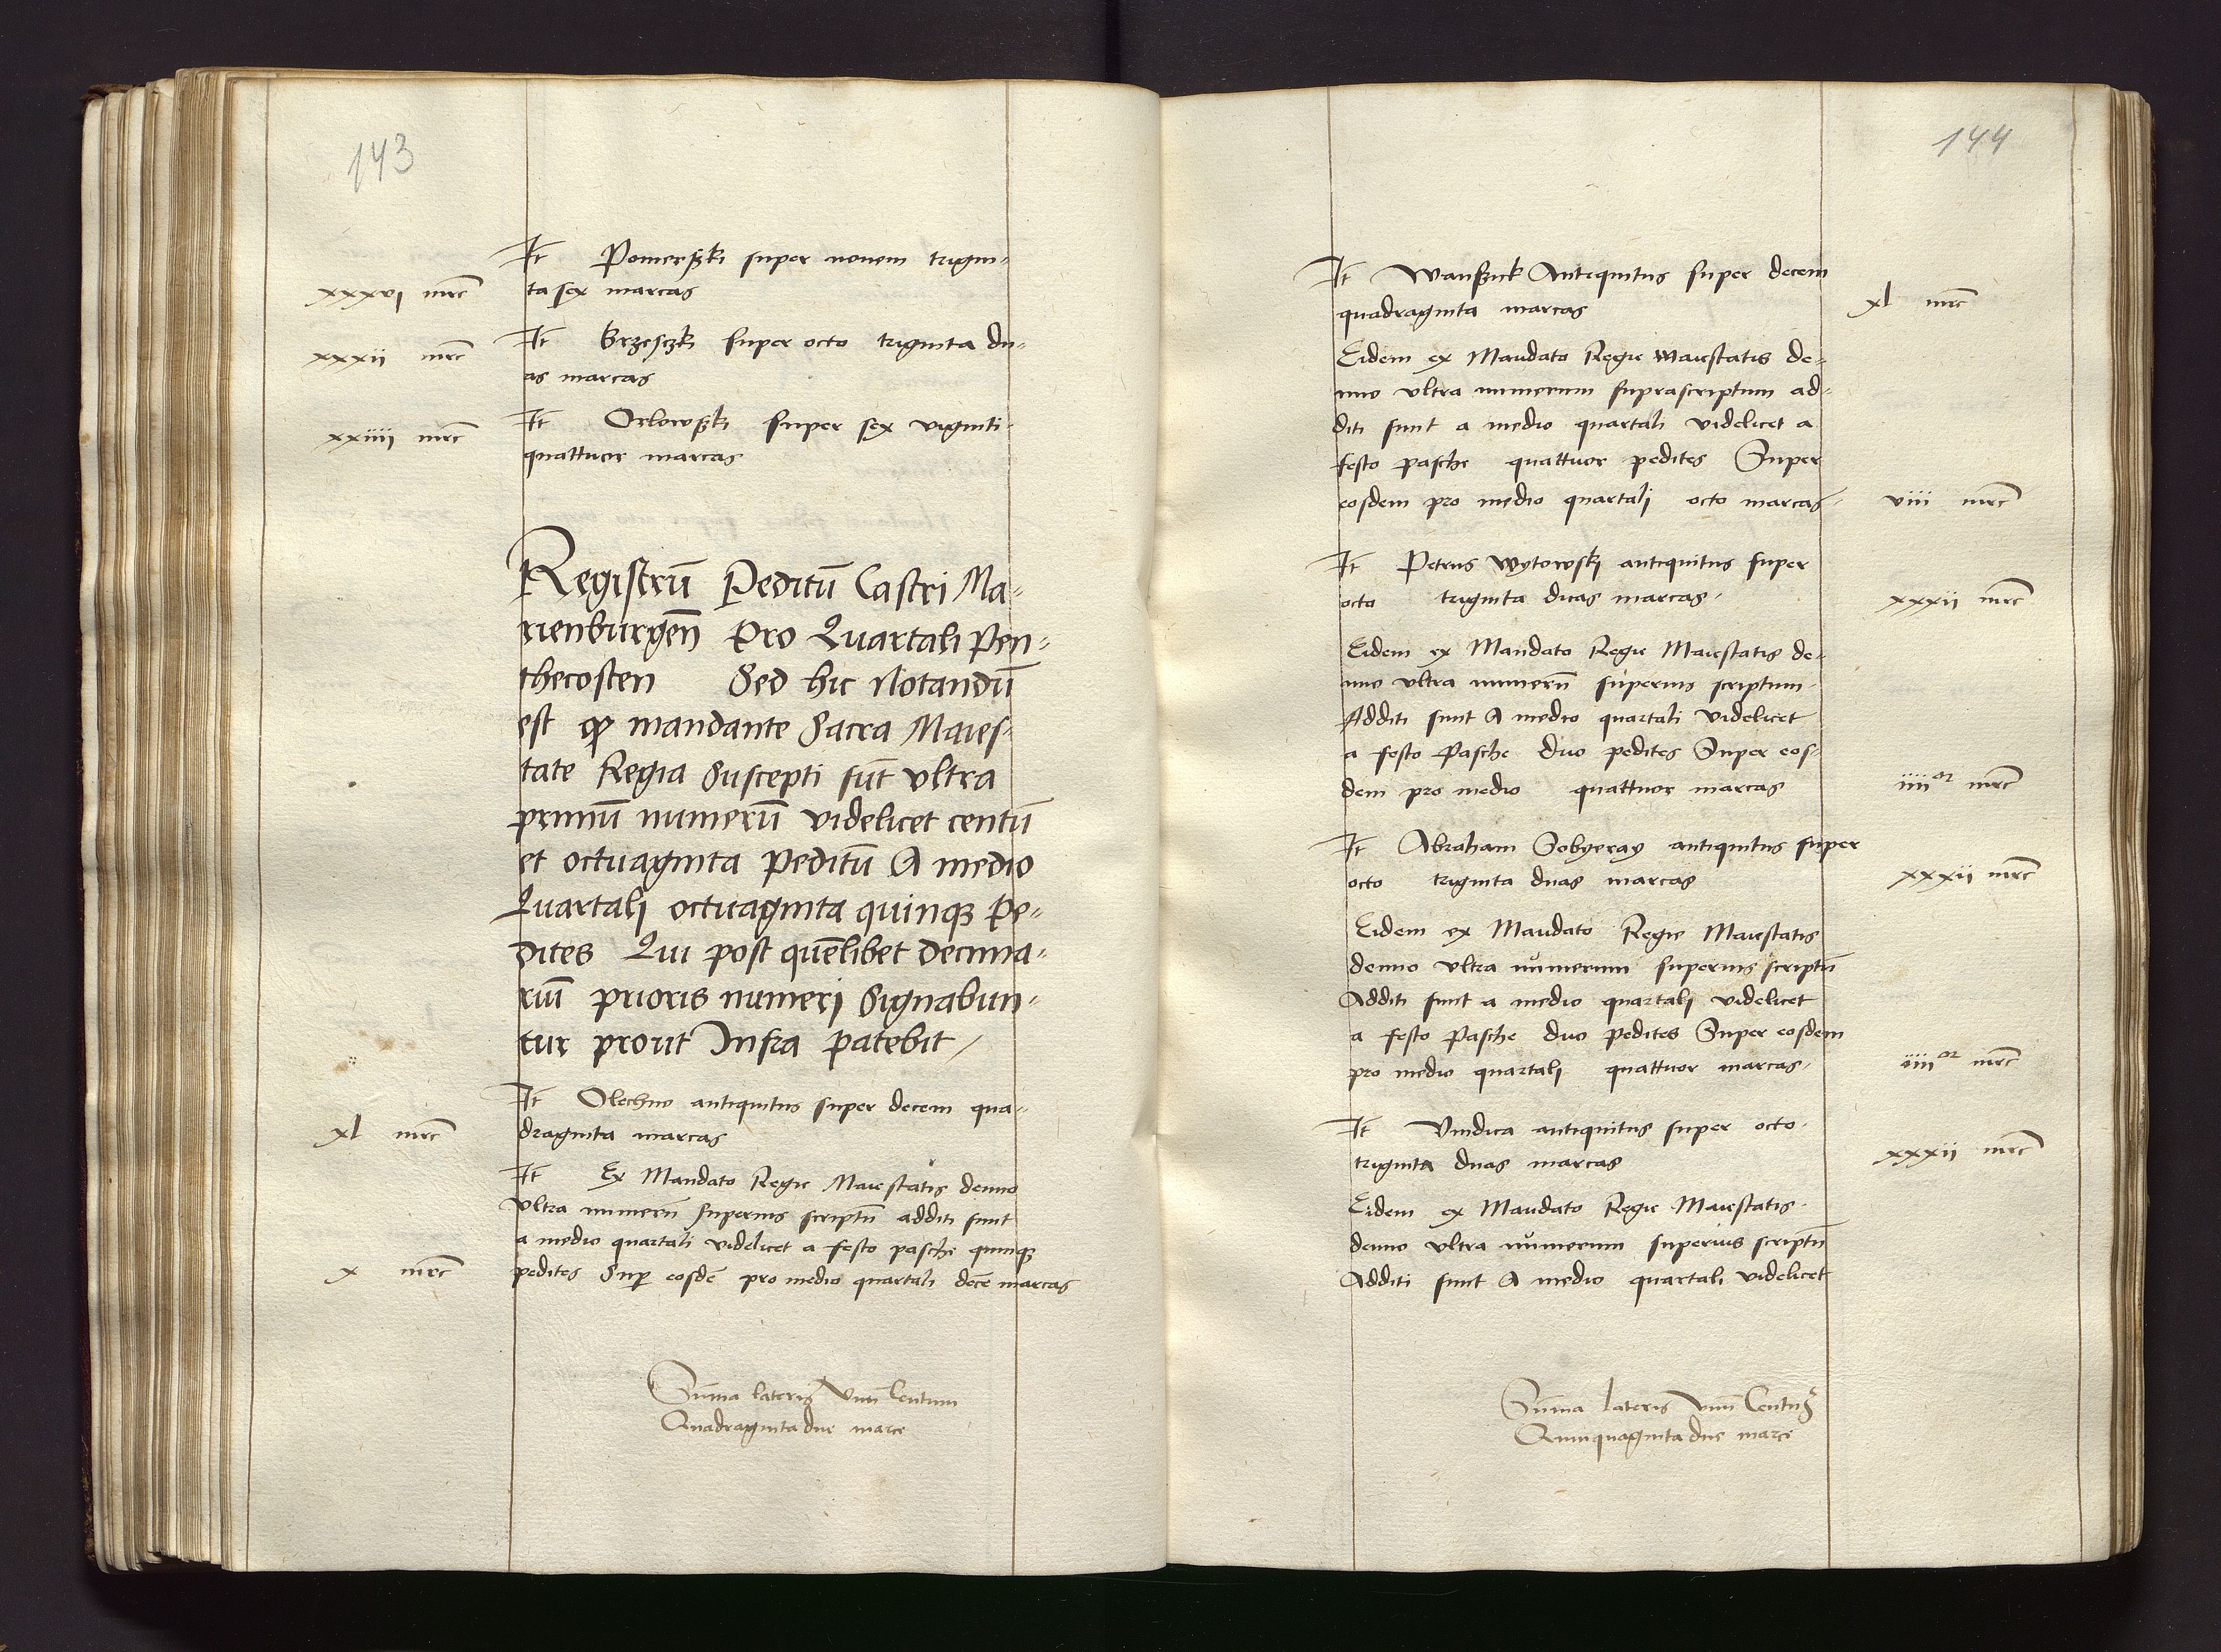 143
It Pomerski super novem trigin-
xxxvi mrc ta sex marcas
It Brzesczk super octo triginta du-
xxxii mrc as marcas
It Orlowski super sex viginti-
xxiiii mrc quattuor marcas
Registrū Peditū Castri Ma-
rienburgen̄ Pro Quartali Pen-
thecosten Sed hic Notandū
est qꝙ mandante Sacra Maies-
tate Regia Suscepti sūt vltra
primū numerū videlicet centū
et octuaginta Peditū A medio
Quartali octuaginta quinqꝫ Pe-
dites Qui post quēlibet decima-
riū prioris numeri Signabun-
tur prout Infra patebit /
It Olechno antiquitus super decem qua-
xl mrc draginta marcas
It Ex Mandato Regie Maiestatis denuo
vltra numerū superius scriptū additi sunt
a medio quartali videlicet a festo pasche quinqꝫ
x mrc pedites Suꝑ eosdē pro medio quartali decē marcas
Sūma lateris Vnū Centum
Quadraginta due marce
144
It Wansik Antiquitus super decem
quadraginta marcas xl mrc
Eidem ex Mandato Regie Maiestatis de-
nuo vltra numerum suprascriptum ad-
diti sunt a medio quartali videlicet a
festo pasche quattuor pedites Super
eosdem pro medio quartali octo marcas- viii mrc
It Petrus Wytowski antiquitus super
octo triginta duas marcas- xxxii mrc
Eidem ex Mandato Regie Maiestatis de-
nuo vltra numerū superius scriptum-
Additi sunt A medio quartali videlicet
a festo Pasche duo pedites Super eos-
dem pro medio quattuor marcas iiiior mrc
It Abraham Sobyeray antiquitus super
octo triginta duas marcas xxxii mrc
Eidem ex Mandato Regie Maiestatis
denuo vltra numerum superius scriptū
Additi sunt a medio quartali videlicet
a festo Pasche duo pedites Super eosdem
pro medio quartali quattuor marcas- iiiior mrc
It Vindica antiquitus super octo-
triginta duas marcas xxxii mrc
Eidem ex Mandato Regie Maiestatis-
denuo vltra numerum superius scriptū
Additi sunt A medio quartali videlicet
Sūma lateris vnū Centū
Quinquaginta due marce